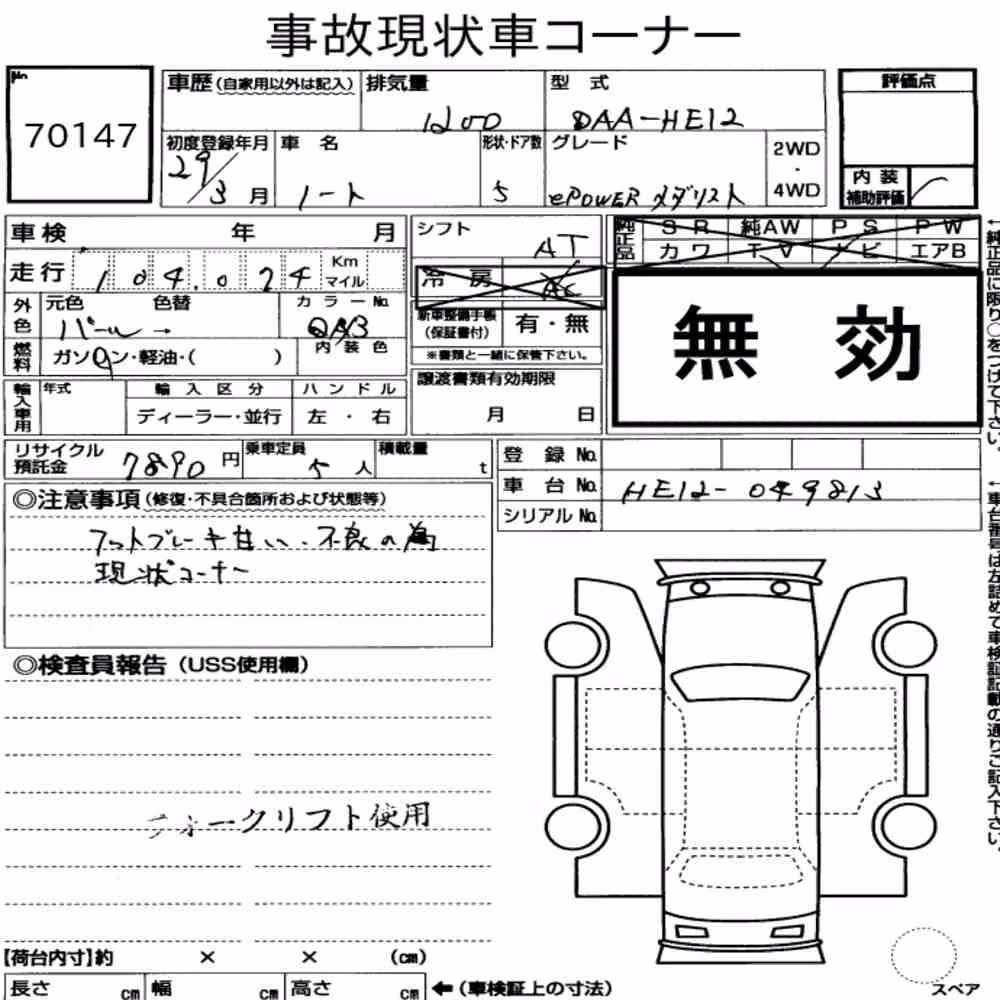 事故現状車コーナー
No. 70147
車歴(自家用以外は記入)
排気量 1200
型式 DAA-HE12
評価点
初度登録年月 29/3月
車名 ノート
形状・ドア数 5
グレード ePOWER メダリスト
2WD・4WD
内装補助評価
車検 年 月
シフト AT
純正品 SR 純AW PS PW
カワ TV ナビ エアB
走行 104.024 Km マイル
冷房 AC
外色 元色 パール→ 色替 カラーNo. QAB
内装色
新車整備手帳(保証書付) 有・無
※書類と一緒に保管下さい。
無効
燃料 ガソリン・軽油・( )
輸入車用 年式 輸入区分 ハンドル
ディーラー・並行 左・右
譲渡書類有効期限
月 日
リサイクル預託金 7890円
乗車定員 5人
積載量 t
登録No.
車台No. HE12-049813
シリアルNo.
◎注意事項(修復・不具合箇所および状態等)
フットブレーキ甘い・不良の為
現状コーナー
◎検査員報告(USS使用欄)
フォークリフト使用
【荷台内寸】約 × × (cm)
長さ cm 幅 cm 高さ cm ←(車検証上の寸法)
スペア
←純正品に限り○をつけて下さい。
←車台番号は左詰めで車検証記載の通りご記入下さい。